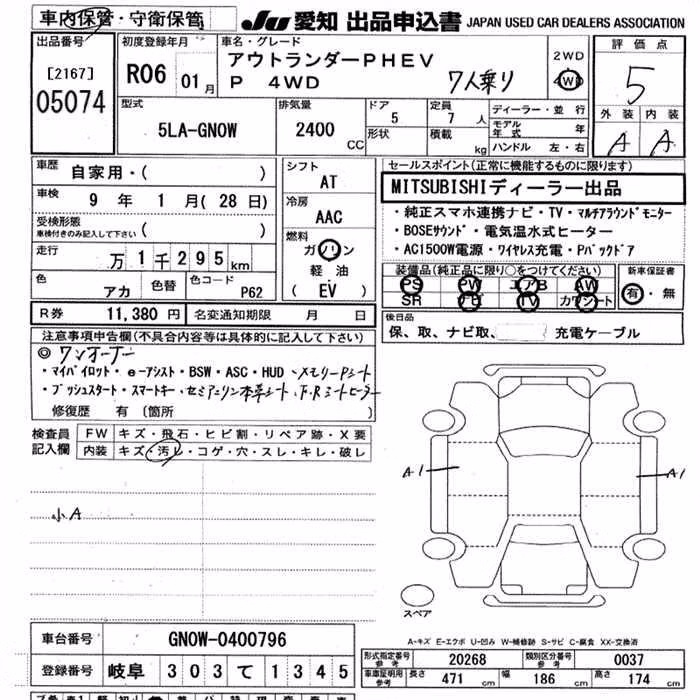 車内保管・守衛保管
JU 愛知 出品申込書 JAPAN USED CAR DEALERS ASSOCIATION
出品番号
[2167]
05074
初度登録年月
R06 01月
車名・グレード
アウトランダーPHEV
P 4WD 7人乗り
2WD
4WD
評価点
5
外装 内装
A A
型式
5LA-GN0W
排気量
2400 CC
ドア
5
形状
定員
7人
積載
kg
ディーラー・並行
モデル年式 年
ハンドル 左・右
車歴
自家用・( )
車検
9年 1月(28日)
受検形態
車検付きのみ記入して下さい ( )
走行
万1千295km
色
アカ
色替
色コード
P62
シフト
AT
冷房
AAC
燃料
ガソリン
軽油
(EV)
セールスポイント(正常に機能するものに限ります)
MITSUBISHIディーラー出品
・純正スマホ連携ナビ・TV・マルチアラウンドモニター
・BOSEサウンド・電気温水式ヒーター
・AC1500W電源・ワイヤレス充電・Pバックドア
装備品(純正品に限り○をつけてください)
PS PW エアB AW
SR ナビ TV カワシート
新車保証書
有・無
R券 11,380円
名変通知期限 月 日
後日品
保、取、ナビ取、 充電ケーブル
注意事項申告欄(不具合内容等は具体的に記入して下さい)
◎ワンオーナー
・マイパイロット・e-アシスト・BSW・ASC・HUD・メモリーPシート
・プッシュスタート・スマートキー・セミアニリン本革シート・F.Rシートヒーター
修復歴 有(箇所 )
検査員記入欄
FW キズ・飛石・ヒビ割・リペア跡・X要
内装 キズ・汚レ・コゲ・穴・スレ・キレ・破レ
小A
A1
A1
スペア
A-キズ E-エクボ U-凹み W-補修跡 S-サビ C-腐食 XX-交換済
車台番号 GN0W-0400796
登録番号 岐阜 303て1345
形式指定番号 参考 20268
類別区分番号 参考 0037
車庫証明用 参考 長さ 471cm 幅 186cm 高さ 174cm